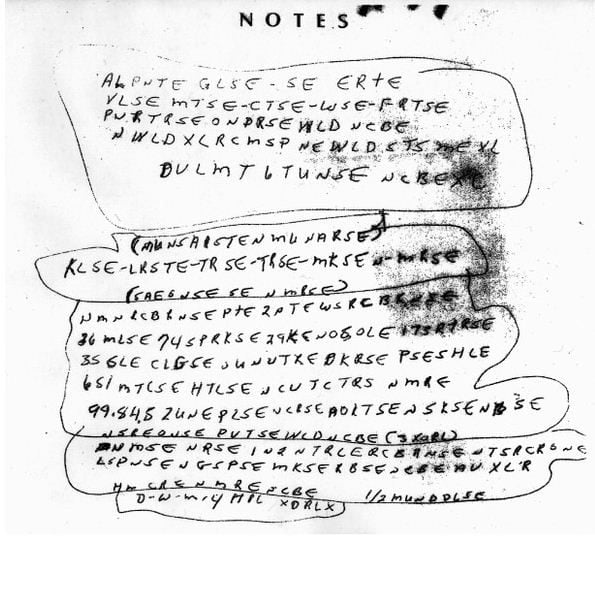 NOTES
ALPNTE GLSE - SE ERTE
VLSE MTSE-CTSE-WSE-FRTSE
PNRTRSEONDRSEWLDNCBE
NWLDXLRCMSP NEWLDSTSMEXL
DULMT6TUNSE NCBEXC
(MUNSAISTENMUNARSE)
KLSE-LRSTE-TRSE-TRSE-MKSEN-MRSE
(SAEGNSESENMRSE)
NMNRCBRNSEPTE2NTEWSRCBRNSE
36MLSE74SPRKSE29KENOSOLE173RTRSE
35GLECLGSEUNUTXEDKRSEPSESHLE
651MTCSEHTLSENCUTCTRSNMRE
99.84.52UNEPLSENCRSEAOLTSENSKSENBSE
NSREONSEPUTSEWLDNCBE(3XORL)
NMSENRSEIN2NTRLERCBRNSENTSRCRBNE
LSPNSENGSPSEMKSERBSENCBEAUXLR
HMCRENMREJCBE 1/2MUNDDLSE
D-W-M-4MILXDRLX